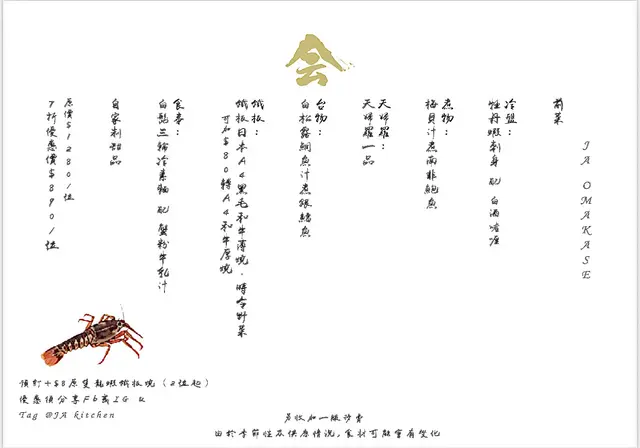 会
JA OMAKASE
前菜
冷盤：
牡丹蝦刺身 配 白酒啫喱
煮物：
梅貝汁煮南非鮑魚
天婦羅：
天婦羅一品
台物：
白松露鯛魚汁煮銀鱈魚
鐵板：
鐵板日本A4黑毛和牛薄燒，時令野菜
可加$80轉A4和牛厚燒
食事：
白髭三輪冷素麵 配 蟹粉牛乳汁
自家制甜品
原價$1280/位
7折優惠價$890/位
預訂+$8原隻龍蝦鐵板燒（2位起）
優惠須分享Fb或IG &
Tag @JA kitchen
另收加一服務費
由於季節性及供應情況，食材可能會有變化